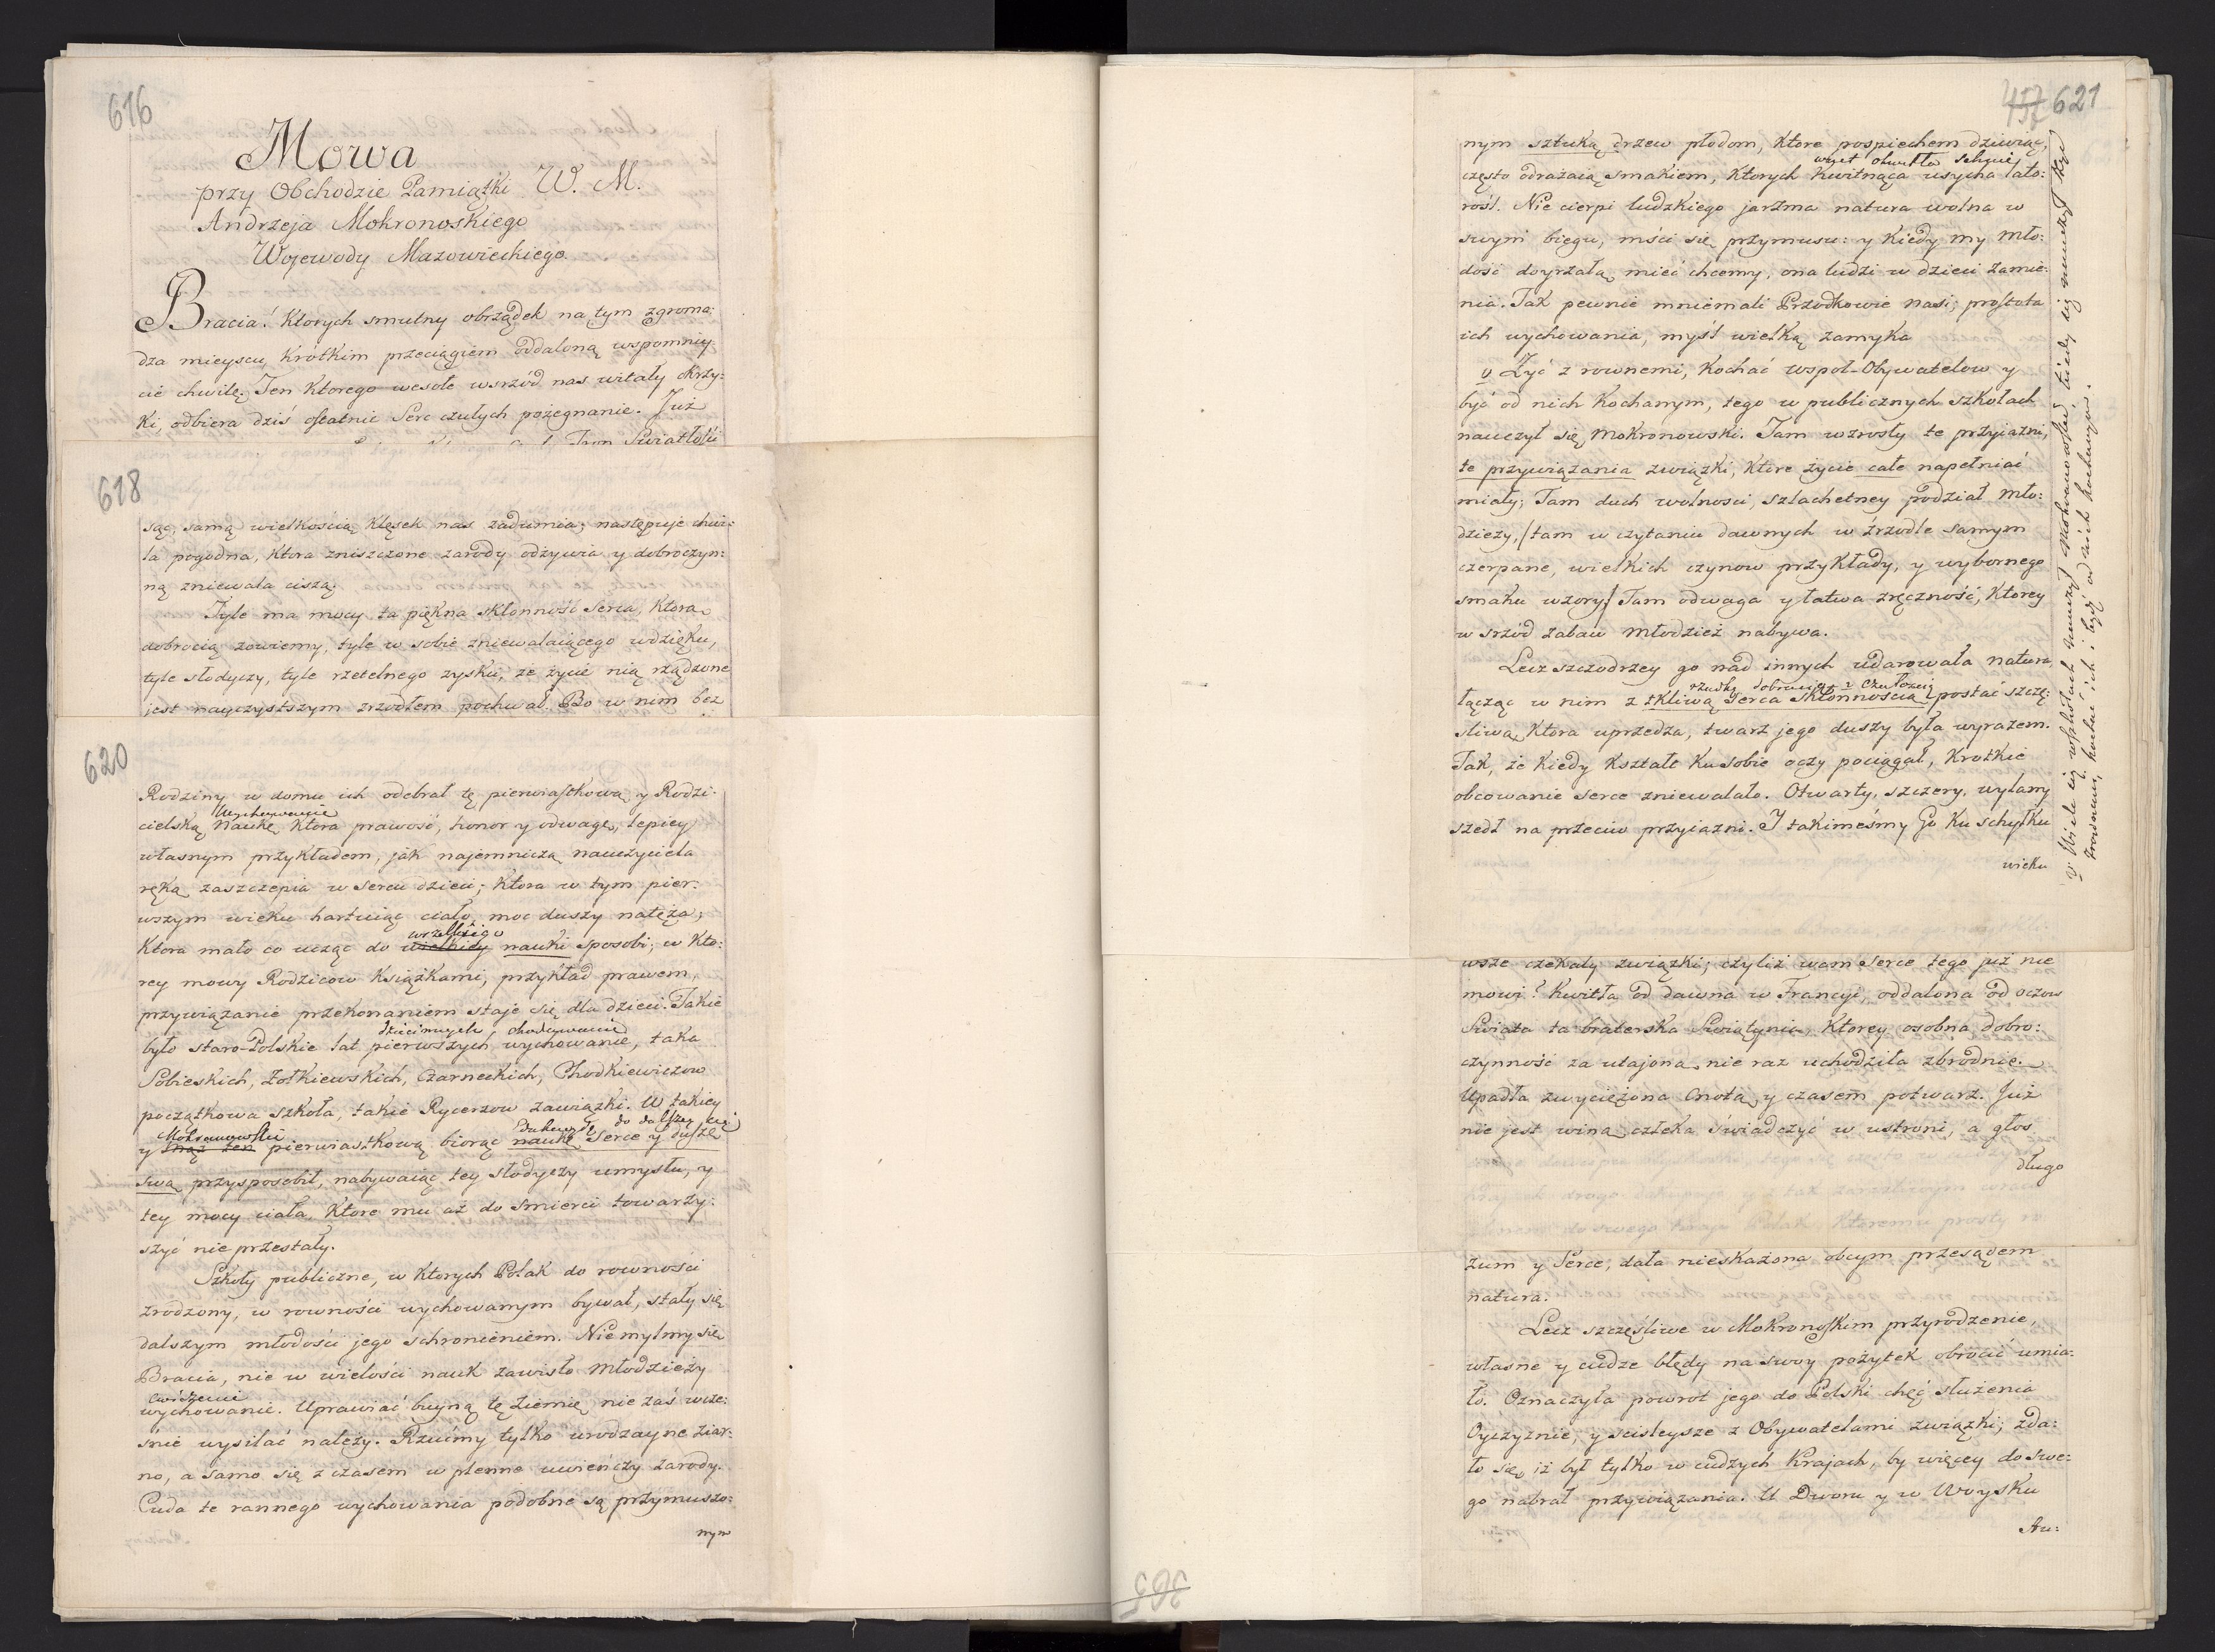 616
Mowa
przy Obchodzie Pamiątki W. M.
Andrzeja Mokronoskiego
Wojewody Mazowieckiego
Bracia! Ktorych smutny obrządek na tym zgroma:
dza mieyscu, Krótkim przeciągiem oddaloną wspomniy
cie chwilę. Ten Ktorego wesołe wsrzód nas witały okrzy:
Ki, odbiera dziś ostatnie Serc czułych pożegnanie. Już
618
sąc, samą wielkoscią Klęsek nas zadumia; następuje chwi:
la pogodna, Ktora zniszczone zarody odżywia y dobroczyn:
ną zniewala ciszą.
Tyle ma mocy ta piękna skłonność Serca, Ktorą
dobrocią zowiemy, tyle w sobie zniewalaiącego wdzięku,
tyle słodyczy, tyle rzetelnego zysku, że życie nią rządzone
jest nayczystszym zrzodłem pochwał. Bo w nim bez
620
Rodziny w domu ich odebrał tę pierwiastkową y Rodzi:
Wychowanie
cielską Naukę, Ktora prawość, honor y odwagę, lepiey
własnym przykładem, jak najemniczą nauczyciela
ręką zaszczepia w sercu dzieci; Ktora w tym pier:
wszym wieku hartuiąc ciało, moc duszy natęża;
wszelkiego
Ktora mało co ucząc do wielkiey nauki sposobi; w Kto:
rey mowy Rodzicow Książkami, przykład prawem,
przywiązanie przekonaniem staje się dla dzieci. Takie
dziecinnych chodowanie
było staro-Polskie lat pierwszych wychowanie, taka
Sobieskich, Żołkiewskich, Czarneckich, Chodkiewiczow
początkowa szkoła, takie Rycerzow zawiązki. W takiey
Mokronowski do dalszey
y mąż ten pierwiastkową biorąc naukę Serce y duszę
swą przysposobił, nabywaiąc tey słodyczy umysłu, y
tey mocy ciała, Ktore mu aż do smierci towarzy:
szyć nie przestały.
Szkoły publiczne, w Ktorych Polak do rowności
zrodzony, w rowności wychowanym bywał, stały się
dalszym młodości jego schronieniem. Nie mylmy się
Bracia, nie w wielości nauk zawisło Młodzieży
cwiczenie
wychowanie. Uprawiać buyną tę ziemię, nie zaś wcze:
śnie wysilać należy. Rzućmy tylko urodzayne ziar:
no, a samo się z czasem w plenne uwieńczy zarody.
Cuda te rannego wychowania podobne są przymuszo:
nym
457 621
nym sztuką drzew płodom, Ktore pospiechem dziwiąc,
często odrażaią smakiem, Ktorych Kwitnąca usycha lato:
rośl. Nie cierpi ludzkiego jarzma natura wolna w
swym biegu, mści się przymusu: y Kiedy my mło:
dość doyrzałą mieć chcemy, ona ludzi w dzieci zamie:
nia. Tak pewnie mniemali Przodkowie nasi; prostota
ich wychowania, mysl wielką zamyka
Żyć z rownemi, Kochać wspoł-Obywatelow y
być od nich Kochanym, tego w publicznych szkołach
nauczył się Mokronowski. Tam wzrosły te przyiaźni,
te przywiązania związki, Ktore życie całe napełniać
miały; Tam duch wolnosci, szlachetney podział Mło:
dzieży, tam w czytaniu dawnych w źrzodle samym
czerpane, wielkich czynow przykłady, y wybornego
smaku wzory; Tam odwaga y łatwa zręczność, Ktorey
w srzód zabaw młodzież nabywa.
Lecz szczodrzey go nad innych udarowała natura,
rzadką dobrocią i czułoscią
łącząc w nim z tkliwą Serca Skłonnością postać szczę:
sliwą, Ktora uprzedza, twarz jego duszy była wyrazem.
Tak, że Kiedy Kształt Ku sobie oczy pociągał, Krotkie
obcowanie serce zniewalało. Otwarty, szczery, wylany
szedł na przeciw przyiazni. I takimeśmy Go Ku schyłku
wieku
wsze czekały związki; czyliż wam Serce tego już nie
mowi? Kwitła od dawna w Francyi, oddalona od oczow
Swiata ta braterska Swiątynia, Ktorey osobna dobro:
czynność za utajoną nie raz uchodziła zbrodnię.
Upadła zwyciężona Cnotą y czasem potwarz. Już
nie jest winą człeka świadczyć w ustroni, a głos
długo
zum y Serce, dała nieskażona obcym przesądem
natura.
Lecz szczęśliwe w Mokronoskim przyrodzenie,
własne y cudze błędy na swoy pożytek obrocić umia:
ło. Oznaczyła powrot jego do Polski chęć służenia
Oyczyznie, y scisleysze z Obywatelami związki; zda:
ło się, iż był tylko w cudzych Krajach, by więcey do swe:
go nabrał przywiązania. U Dworu y w Woysku
Au:
505